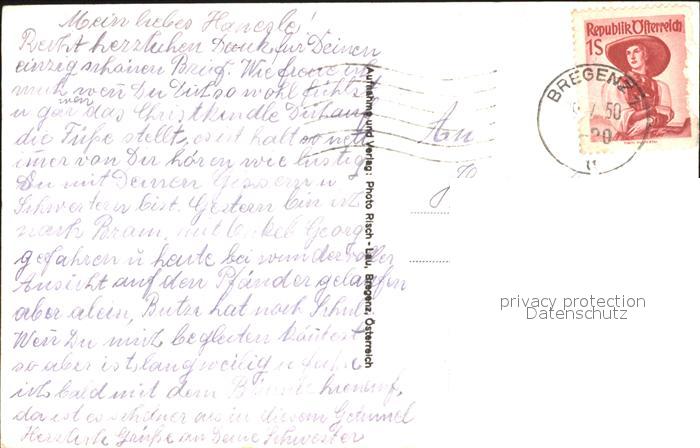 Mein liebes Hanerle!
Recht herzlichen Dank für Deinen
einzig schönen Brief. Wie freue ich
mich wen Du Dich so wohl fühlst
u gar wen das Christkindle Dir
die Füße stellt, es ist halt so nett
imer von Dir hören wie lustig
Du mit Deinen u
Schwestern bist. Gestern bin ich
nach mit Onkel Georg
gefahren u heute bei wundervoller
Aussicht auf den Pfänder gelaufen
aber alein, hat noch Schule
Wen Du mich begleiten köntest
so aber ist langweilig u fahre
ich bald mit dem
da ist es schöner als in diesem Getümmel
Herzliche Grüße an Deine Schwester
Aufnahme und Verlag: Photo Risch-Lau, Bregenz, Österreich
An
Republik Österreich
1S
BREGENZ 1
50
20
privacy protection
Datenschutz